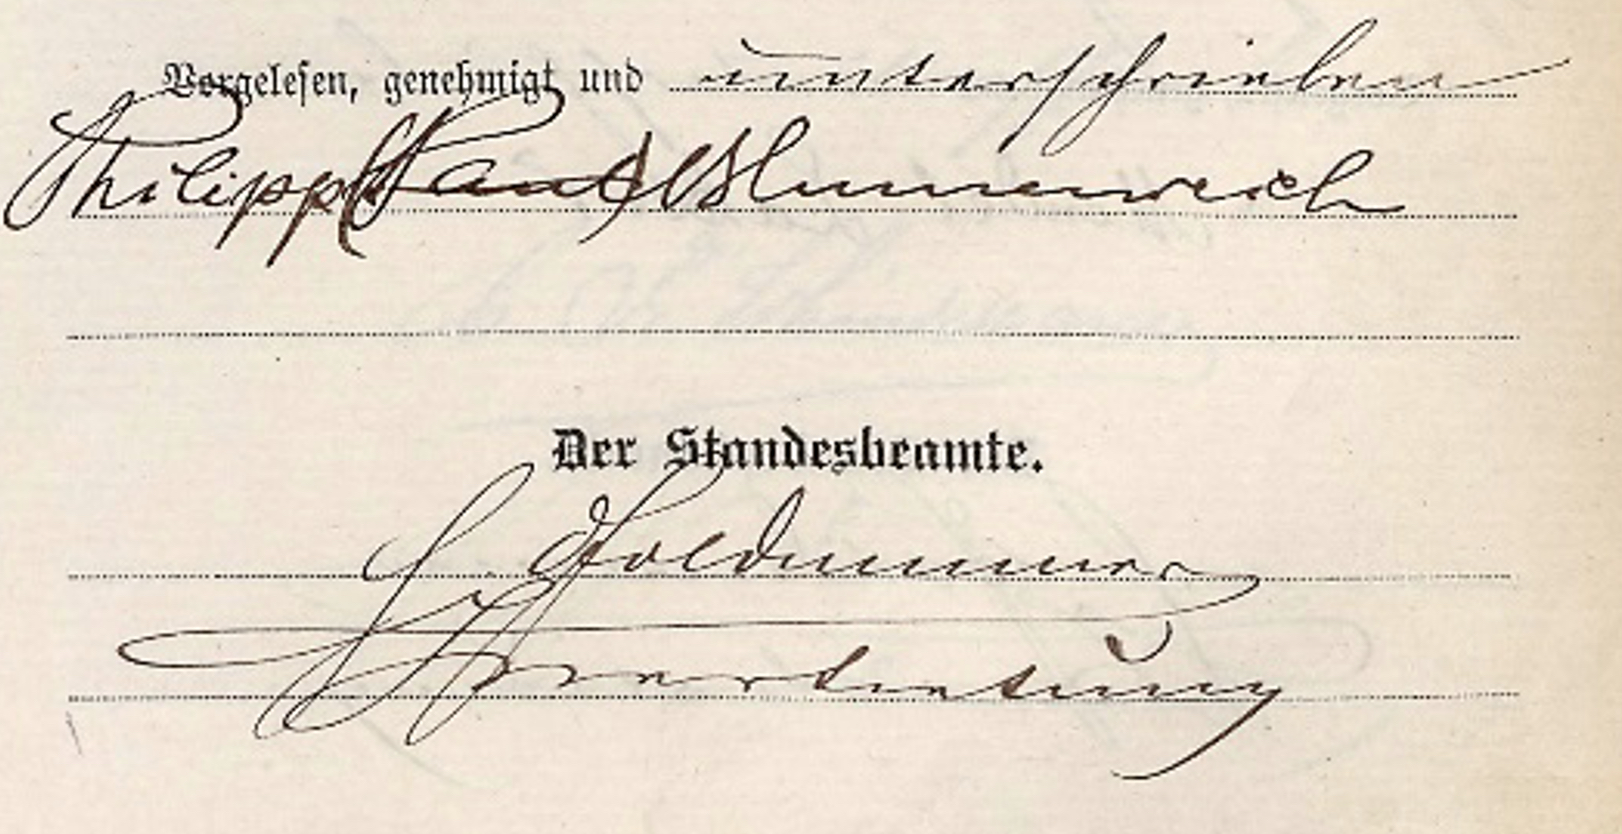 Vorgelesen, genehmigt und unterschrieben
Philipp Paul Blumenreich
Der Standesbeamte.
Goldmmer
In Vertretung